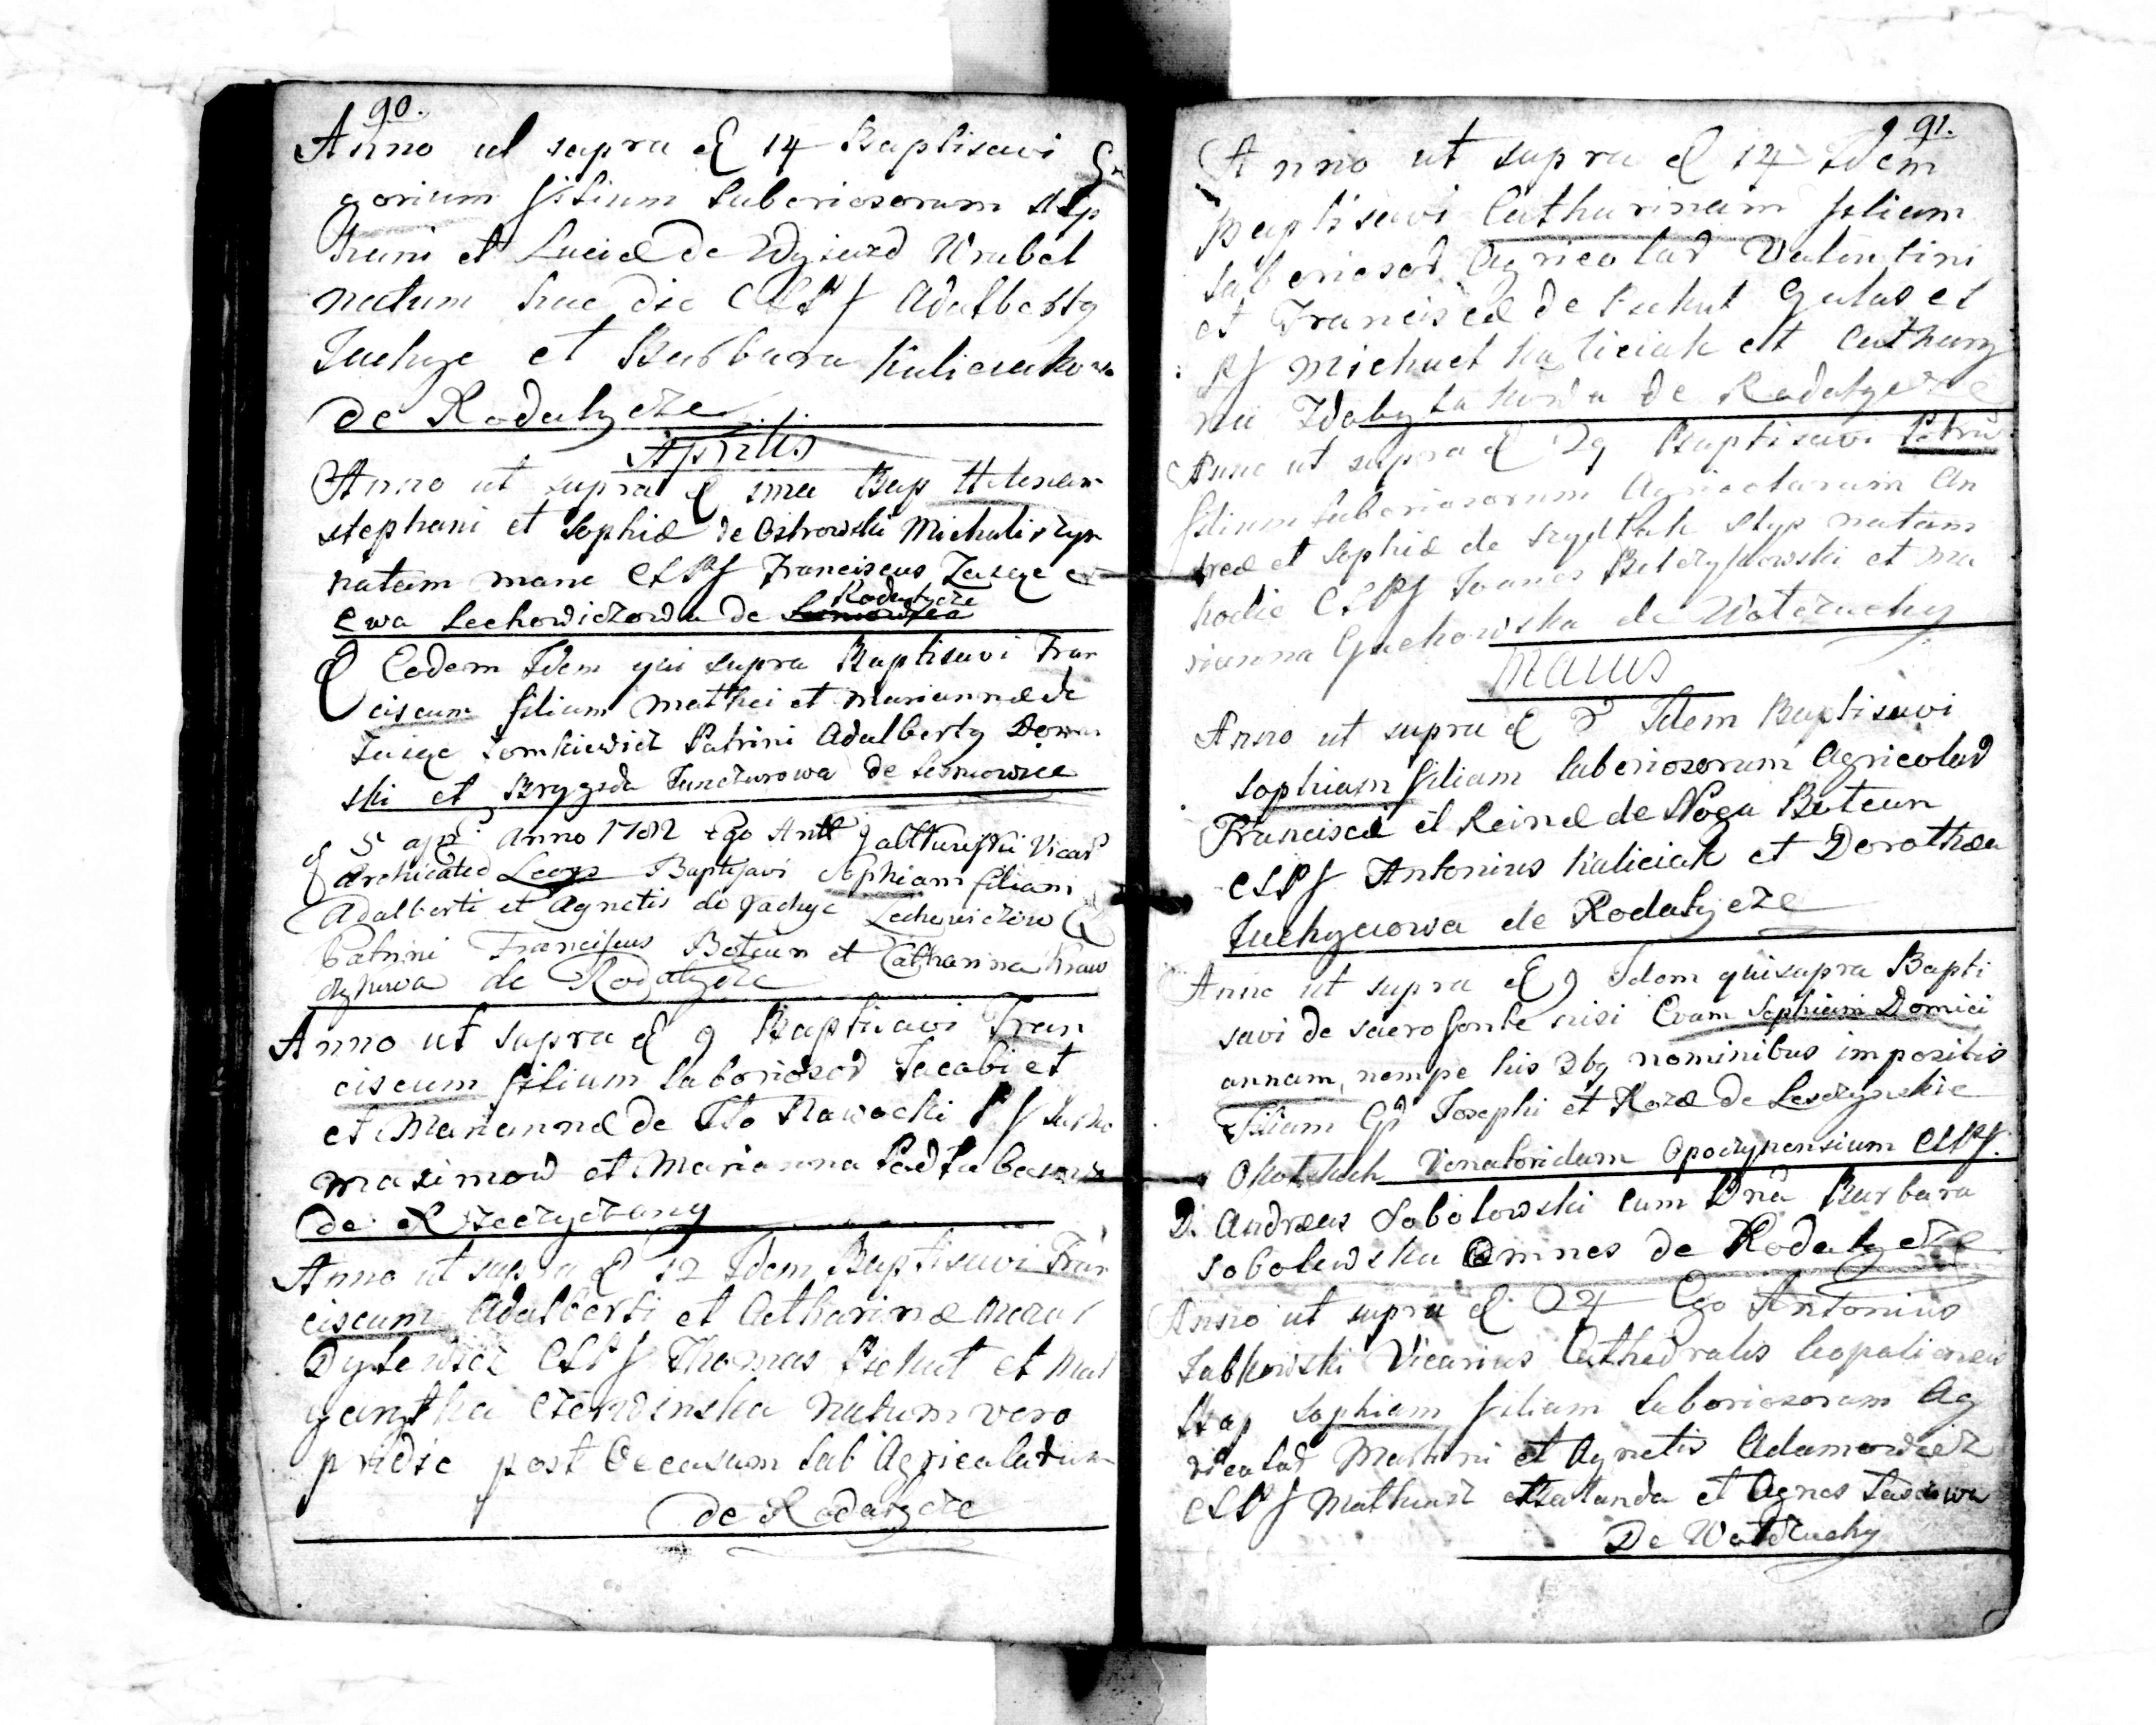 90.
Anno ut sapra d 14 Baptisavi Gr
gorium filium Laboriosorum Step
hani et Luciæ de Wyjazd Wrubel
natum hac die CLPf Adalberty
Juchye et Barbara Kulieiakowa
de Rodatyeze
Aprilis
Anno ut supra d ima Bap Helenam
stephani et Sophiæ de Ostrowski Michaliszyn
natam mane CLPf Franciscus Zaseye et
Ewa Lechowiczowa de Rodatycze
d Eodem Idem qui supra Baptisavi Fran
ciscum filium Mathei et Mariannæ de
Zaseye Tomkiewicz Patrini Adalberty Down
ski et Brygida Janczurowa de Lesniowice
d 5 apr Anno 1782 Ego Antt Jabłkowski Vicar
Archicated Leopo Baptisavi Sophiam filiam
Adalberti et Agnetis de Jachye Lechowiczow
Patrini Franciscus Boteun et Catharina Kraw
czykowa de Rodatycze
Anno ut supra d 9 Baptisavi Fran
ciscum filium Laboriosor Jacobi et
et Mariannæ de Nawocki Pf
maximow et Marianna
de Rzeczyczany
Anno ut supra d 12 Idem Baptisavi Fran
ciscum Adalberti et Catharinæ
Dylewicz CLPf Thomas Piekut et Mal
garztha Czerwinska natum vero
pridie post Occasum Lab Agricolarum
de Rodatycze
91.
Anno ut supra d 14 Idem
Baptisavi Catharinam filiam
Laboriosor Agricolar Valentini
et Franciscæ de Piekut Gulas CL
Pf Michael Kaliciak et Cathary
na Zdobylakowa de Rodatycze
Anno ut supra d 29 Baptisavi Petru
filium Laboriosorum Agricolarum An
dreæ et Sophiæ de Szydłak Slyp natum
hodie CLPf Joanes Belczykowski et Ma
rianna Gnehowska de Wołczuchy
Maius
Anno ut supra d 3 Idem Baptisavi
Sophiam filiam Laboriosorum Agricolar
Francisci et Reinæ de Noga Boteun
CLPf Antonius Kaliciak et Dorothea
Juchycowa de Rodatycze
Anno ut supra d 9 Idem qui supra Bapti
savi de sacro fonte nisi Evam Sophiam Domici
annam, nempe his 3bq nominibus impositis
Filiam Gd Josephi et Rozæ de Lesczynskie
Venatoridum Opoczynensium CLPf.
D. Andreas Sobolowski cum Dnâ Barbara
Sobolewska Omnes de Rodatycze
Anno ut supra d 24 Ego Antonius
Jabkowski Vicarius Cathedralis Leopoliensis
Bap Sophiam filiam Laboriosorum Ag
ricolar Martini et Agnetis Adamowicz
CLPf Mathiasz Hałanda et Agnes
De Wołczuchy